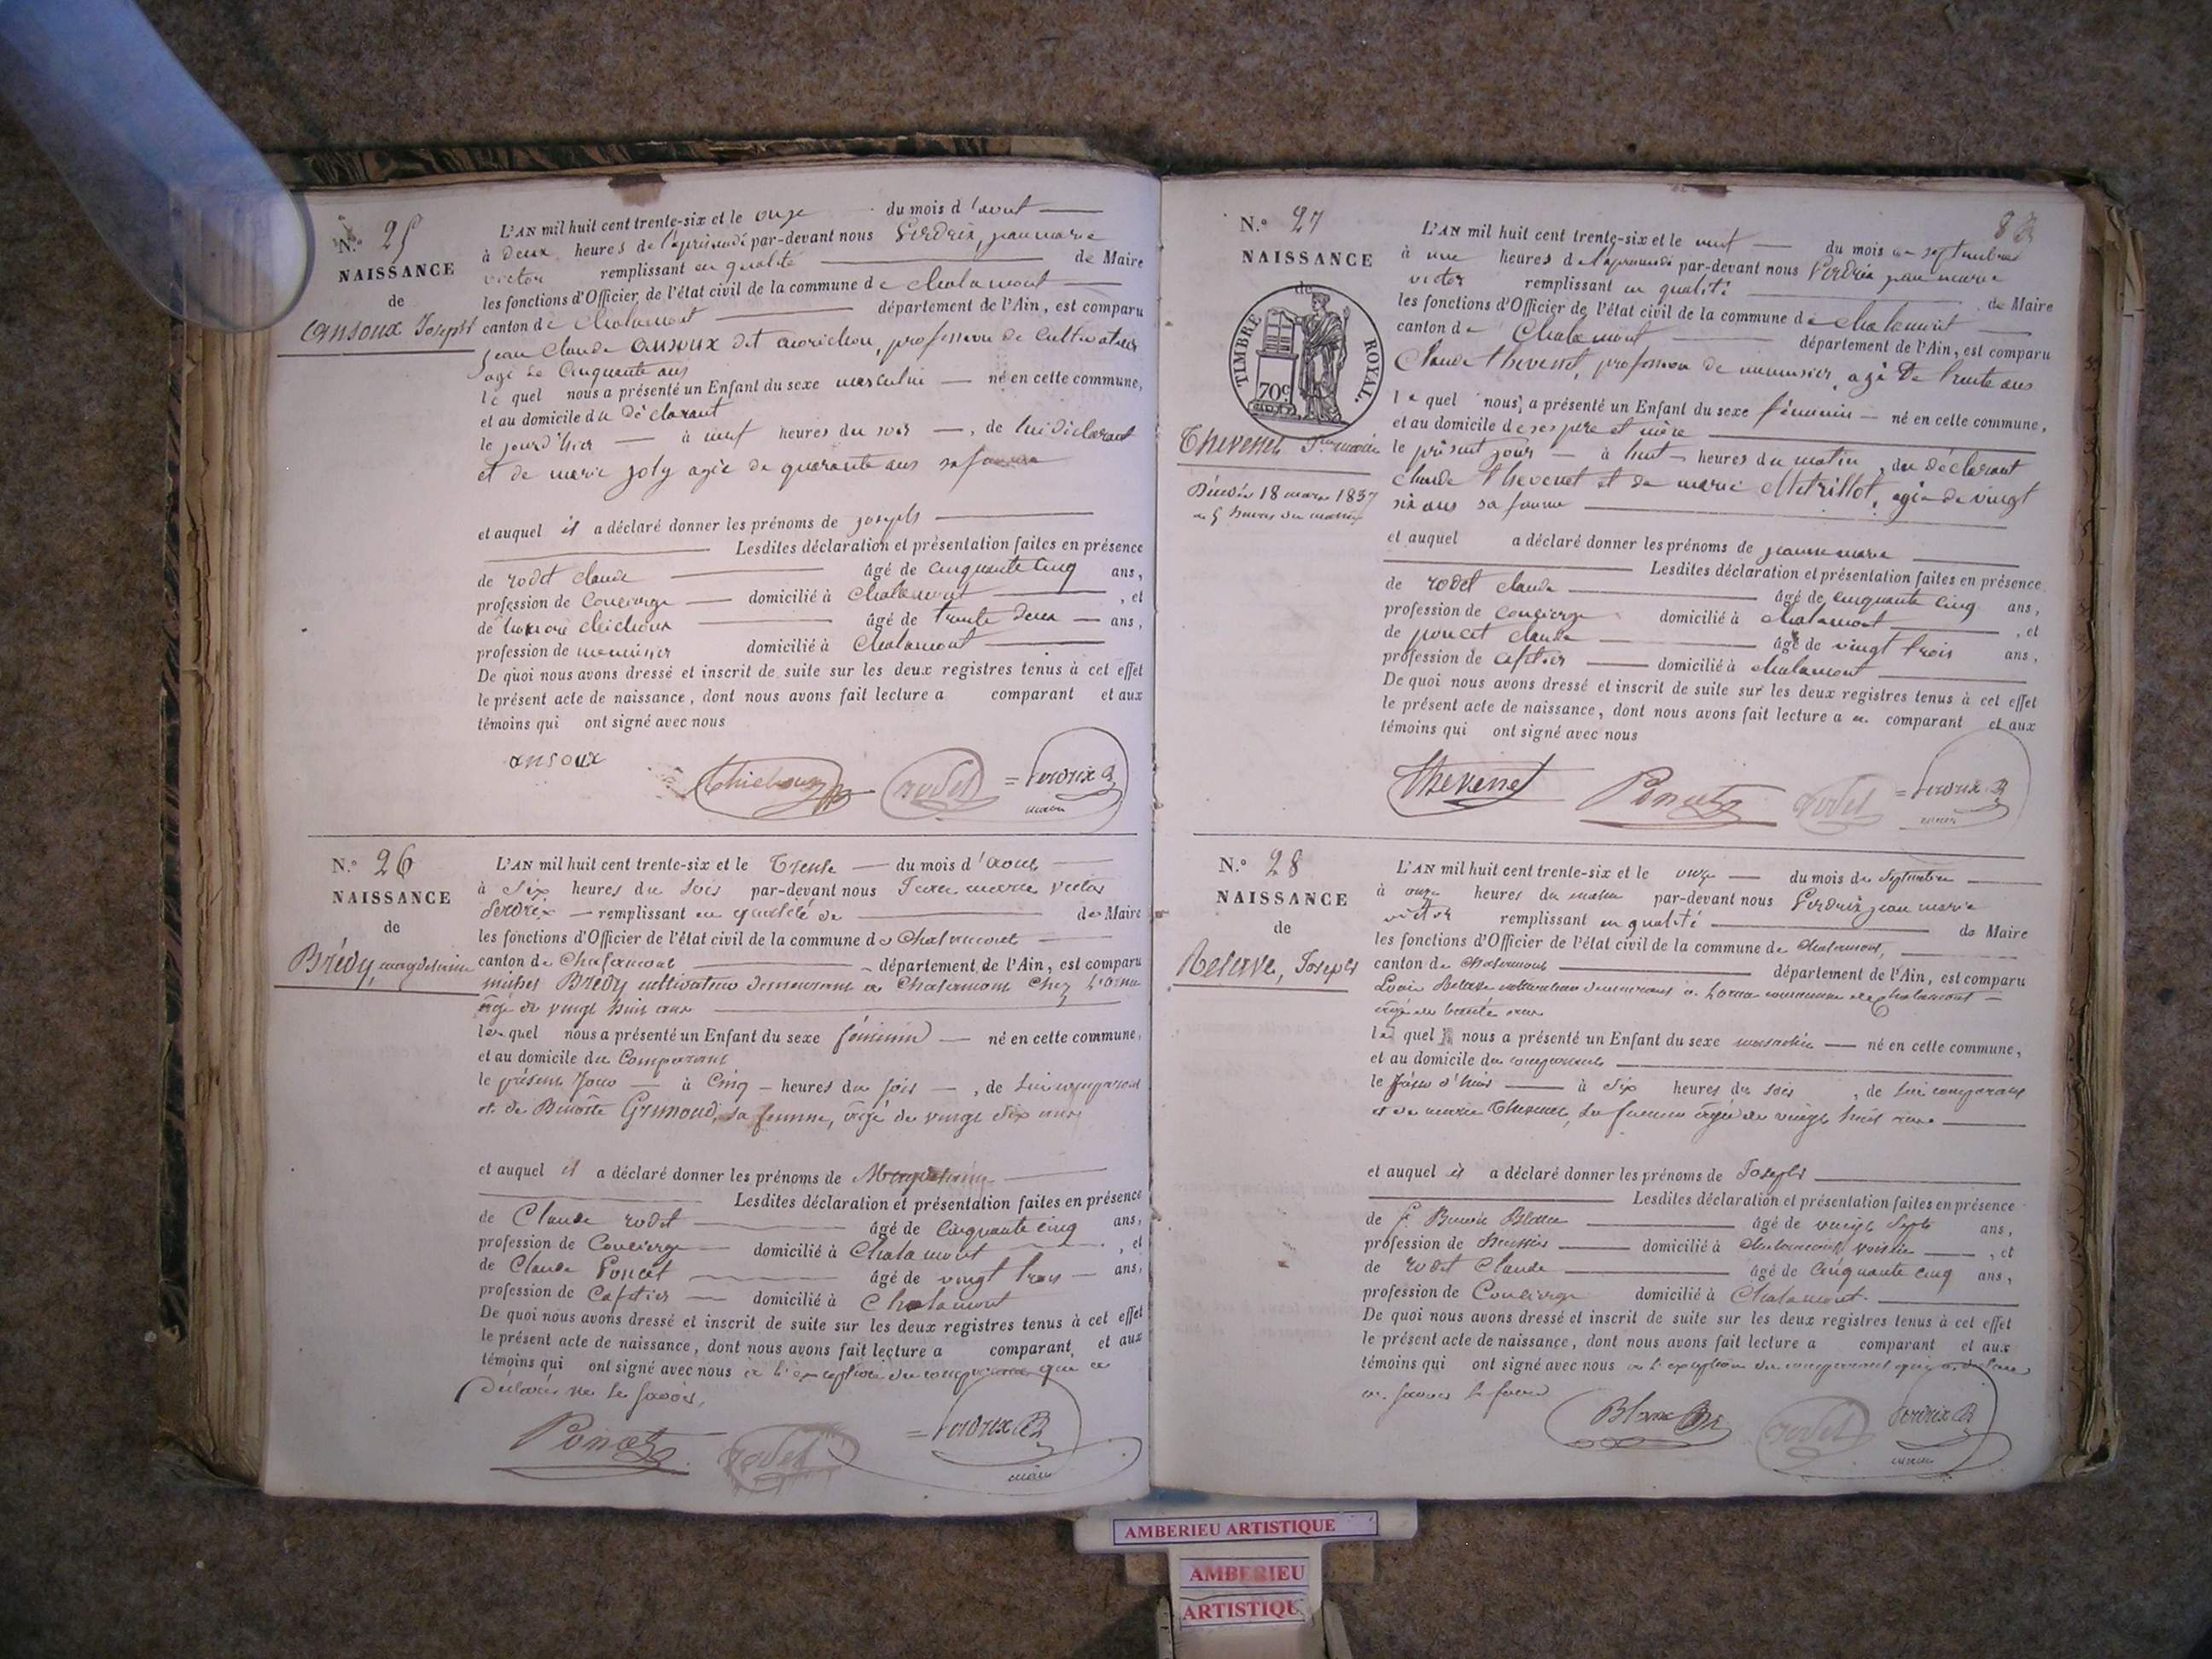 N.° 25
NAISSANCE
de
ansoux Joseph
L'AN mil huit cent trente-six et le onze du mois d'aout
à deux heures de l'après midi par-devant nous Perdrix, jean marie
victor remplissant en qualité de Maire
les fonctions d'Officier de l'état civil de la commune de chalamont
canton de Chalamont département de l'Ain, est comparu
jean Claude ansoux dit profession de Cultivateur
agé de Cinquante ans
le quel nous a présenté un Enfant du sexe masculin né en cette commune,
et au domicile du déclarant
le jourd'hier à neuf heures du soir, de lui déclarant
et de marie joly agée de quarante ans sa femme
et auquel il a déclaré donner les prénoms de joseph
Lesdites déclaration et présentation faites en présence
de rodet claude âgé de cinquante cinq ans,
profession de Concierge domicilié à Chalamont, et
de âgé de trente deux ans,
profession de menuisier domicilié à Chalamont
De quoi nous avons dressé et inscrit de suite sur les deux registres tenus à cet effet
le présent acte de naissance, dont nous avons fait lecture a comparant et aux
témoins qui ont signé avec nous
ansoux
rodet
Perdrix
maire
N.° 26
NAISSANCE
de
Brédy, magdelaine
L'AN mil huit cent trente-six et le Trente du mois d'aout
à Six heures du soir par-devant nous Jean marie victor
Perdrix remplissant en qualité de de Maire
les fonctions d'Officier de l'état civil de la commune de Chalamont
canton de Chalamont département de l'Ain, est comparu
michel Brédy cultivateur demeurant à Chalamont chez
âgé de vingt huit ans
le quel nous a présenté un Enfant du sexe féminin né en cette commune,
et au domicile du Comparant
le présent Jour à Cinq heures du soir, de lui comparant
et de Benoîte Grimoud, sa femme, âgé de vingt six ans
et auquel il a déclaré donner les prénoms de Magdelaine
Lesdites déclaration et présentation faites en présence
de Claude rodet âgé de cinquante cinq ans,
profession de Concierge domicilié à Chalamont, et
de Claude Poncet âgé de vingt trois ans,
profession de Cafetier domicilié à Chalamont
De quoi nous avons dressé et inscrit de suite sur les deux registres tenus à cet effet
le présent acte de naissance, dont nous avons fait lecture a comparant, et aux
témoins qui ont signé avec nous à l'exception du comparant qui a
déclaré ne le savoir.
Poncet
rodet
Perdrix
maire
83
N.° 27
NAISSANCE
de
TIMBRE ROYAL.
70c
Thevenet, Jne marie
Décédée 18 mars 1837
à 5 heures du matin
L'AN mil huit cent trente-six et le neuf du mois de septembre
à une heures de l'apremidi par-devant nous Perdrix jean marie
victor remplissant en qualité de Maire
les fonctions d'Officier de l'état civil de la commune de chalamont
canton de Chalamont département de l'Ain, est comparu
Claude thevenet, profession de menuisier, agé de trente ans
le quel nous a présenté un Enfant du sexe féminin né en cette commune,
et au domicile de ses pere et mère
le présent jour à huit heures du matin, du déclarant
claude thevenet et de marie Metrillot, agée de vingt
six ans sa femme
et auquel a déclaré donner les prénoms de jeanne marie
Lesdites déclaration et présentation faites en présence
de rodet claude âgé de cinquante cinq ans,
profession de concierge domicilié à chalamont, et
de poncet claude âgé de vingt trois ans,
profession de cafetier domicilié à chalamont
De quoi nous avons dressé et inscrit de suite sur les deux registres tenus à cet effet
le présent acte de naissance, dont nous avons fait lecture a u comparant et aux
témoins qui ont signé avec nous
Thevenet
Poncet
rodet
Perdrix
maire
N.° 28
NAISSANCE
de
Belave, Joseph
L'AN mil huit cent trente-six et le onze du mois de Septembre
à onze heures du matin par-devant nous Perdrix jean marie
victor remplissant en qualité de Maire
les fonctions d'Officier de l'état civil de la commune de chalamont,
canton de chalamont département de l'Ain, est comparu
Louis cultivateur demeurant à commune de Chalamont
âgé de trente ans
le quel nous a présenté un Enfant du sexe masculin né en cette commune,
et au domicile du comparant
le Jour d'hier à Six heures du soir, de lui comparant
et de marie Thevenet, sa femme âgée de vingt huit ans
et auquel il a déclaré donner les prénoms de Joseph
Lesdites déclaration et présentation faites en présence
de Benoit Blanc âgé de vingt Sept ans,
profession de huissier domicilié à chalamont, voisin, et
de rodet Claude âgé de cinquante cinq ans,
profession de Concierge domicilié à Chalamont.
De quoi nous avons dressé et inscrit de suite sur les deux registres tenus à cet effet
le présent acte de naissance, dont nous avons fait lecture a comparant et aux
témoins qui ont signé avec nous à l'exception du comparant qui a déclaré
ne savoir le faire
Blanc Bt
rodet
Perdrix
maire
AMBERIEU ARTISTIQUE
AMBERIEU
ARTISTIQUE